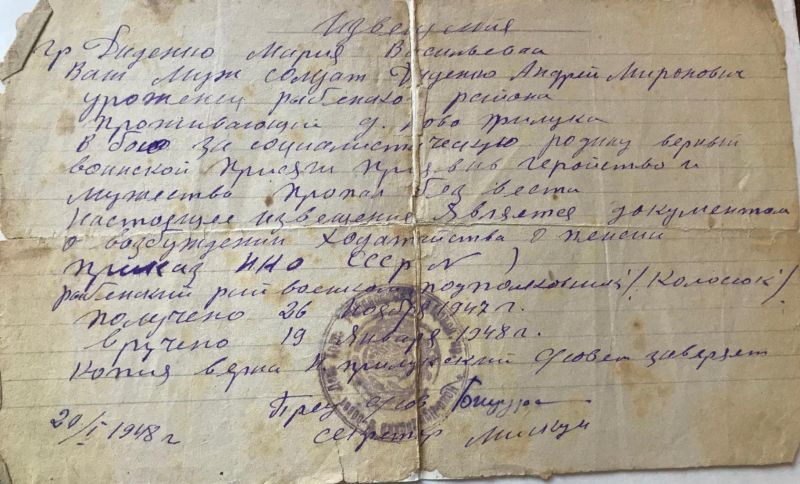 Извещения
гр Диденко Мария Васильевна
Ваш муж солдат Диденко Андрей Миронович
уроженец района
проживающий д. Ново прилука
В бою за социалистическую родину верный
воинской присяги проявив геройство и
мужество пропал без веста
Настоящее извещение является документом
о возбуждении ходатайства о пенсии
приказ НКО СССР N )
рай военком подполковник /Колосюк/
получено 26 ноября 1947 г.
вручено 19 января 1948 г.
Копия верна Н. прилукский с/совет заверяет
Пред с/сов
20/I 1948 г секретар